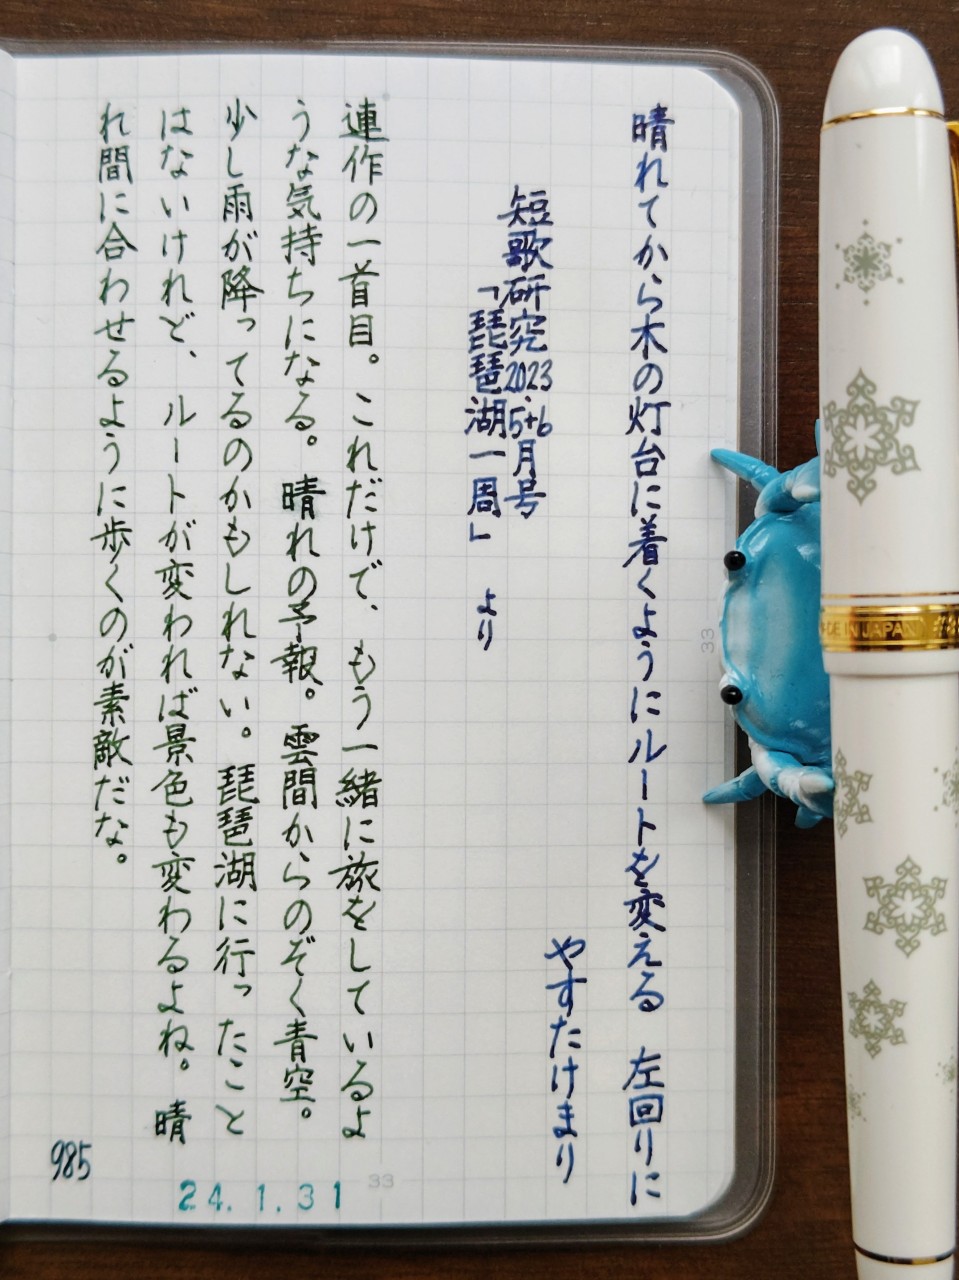 晴れてから木の灯台に着くようにルートを変える　左回りに
やすたけまり
短歌研究2023.5+6月号
「琵琶湖一周」　より
連作の一首目。これだけで、もう一緒に旅をしているよ
うな気持ちになる。晴れの予報。雲間からのぞく青空。
少し雨が降ってるのかもしれない。琵琶湖に行ったこと
はないけれど、ルートが変われば景色も変わるよね。晴
れ間に合わせるように歩くのが素敵だな。
985
24.1.31
33
33
DE IN JAPAN